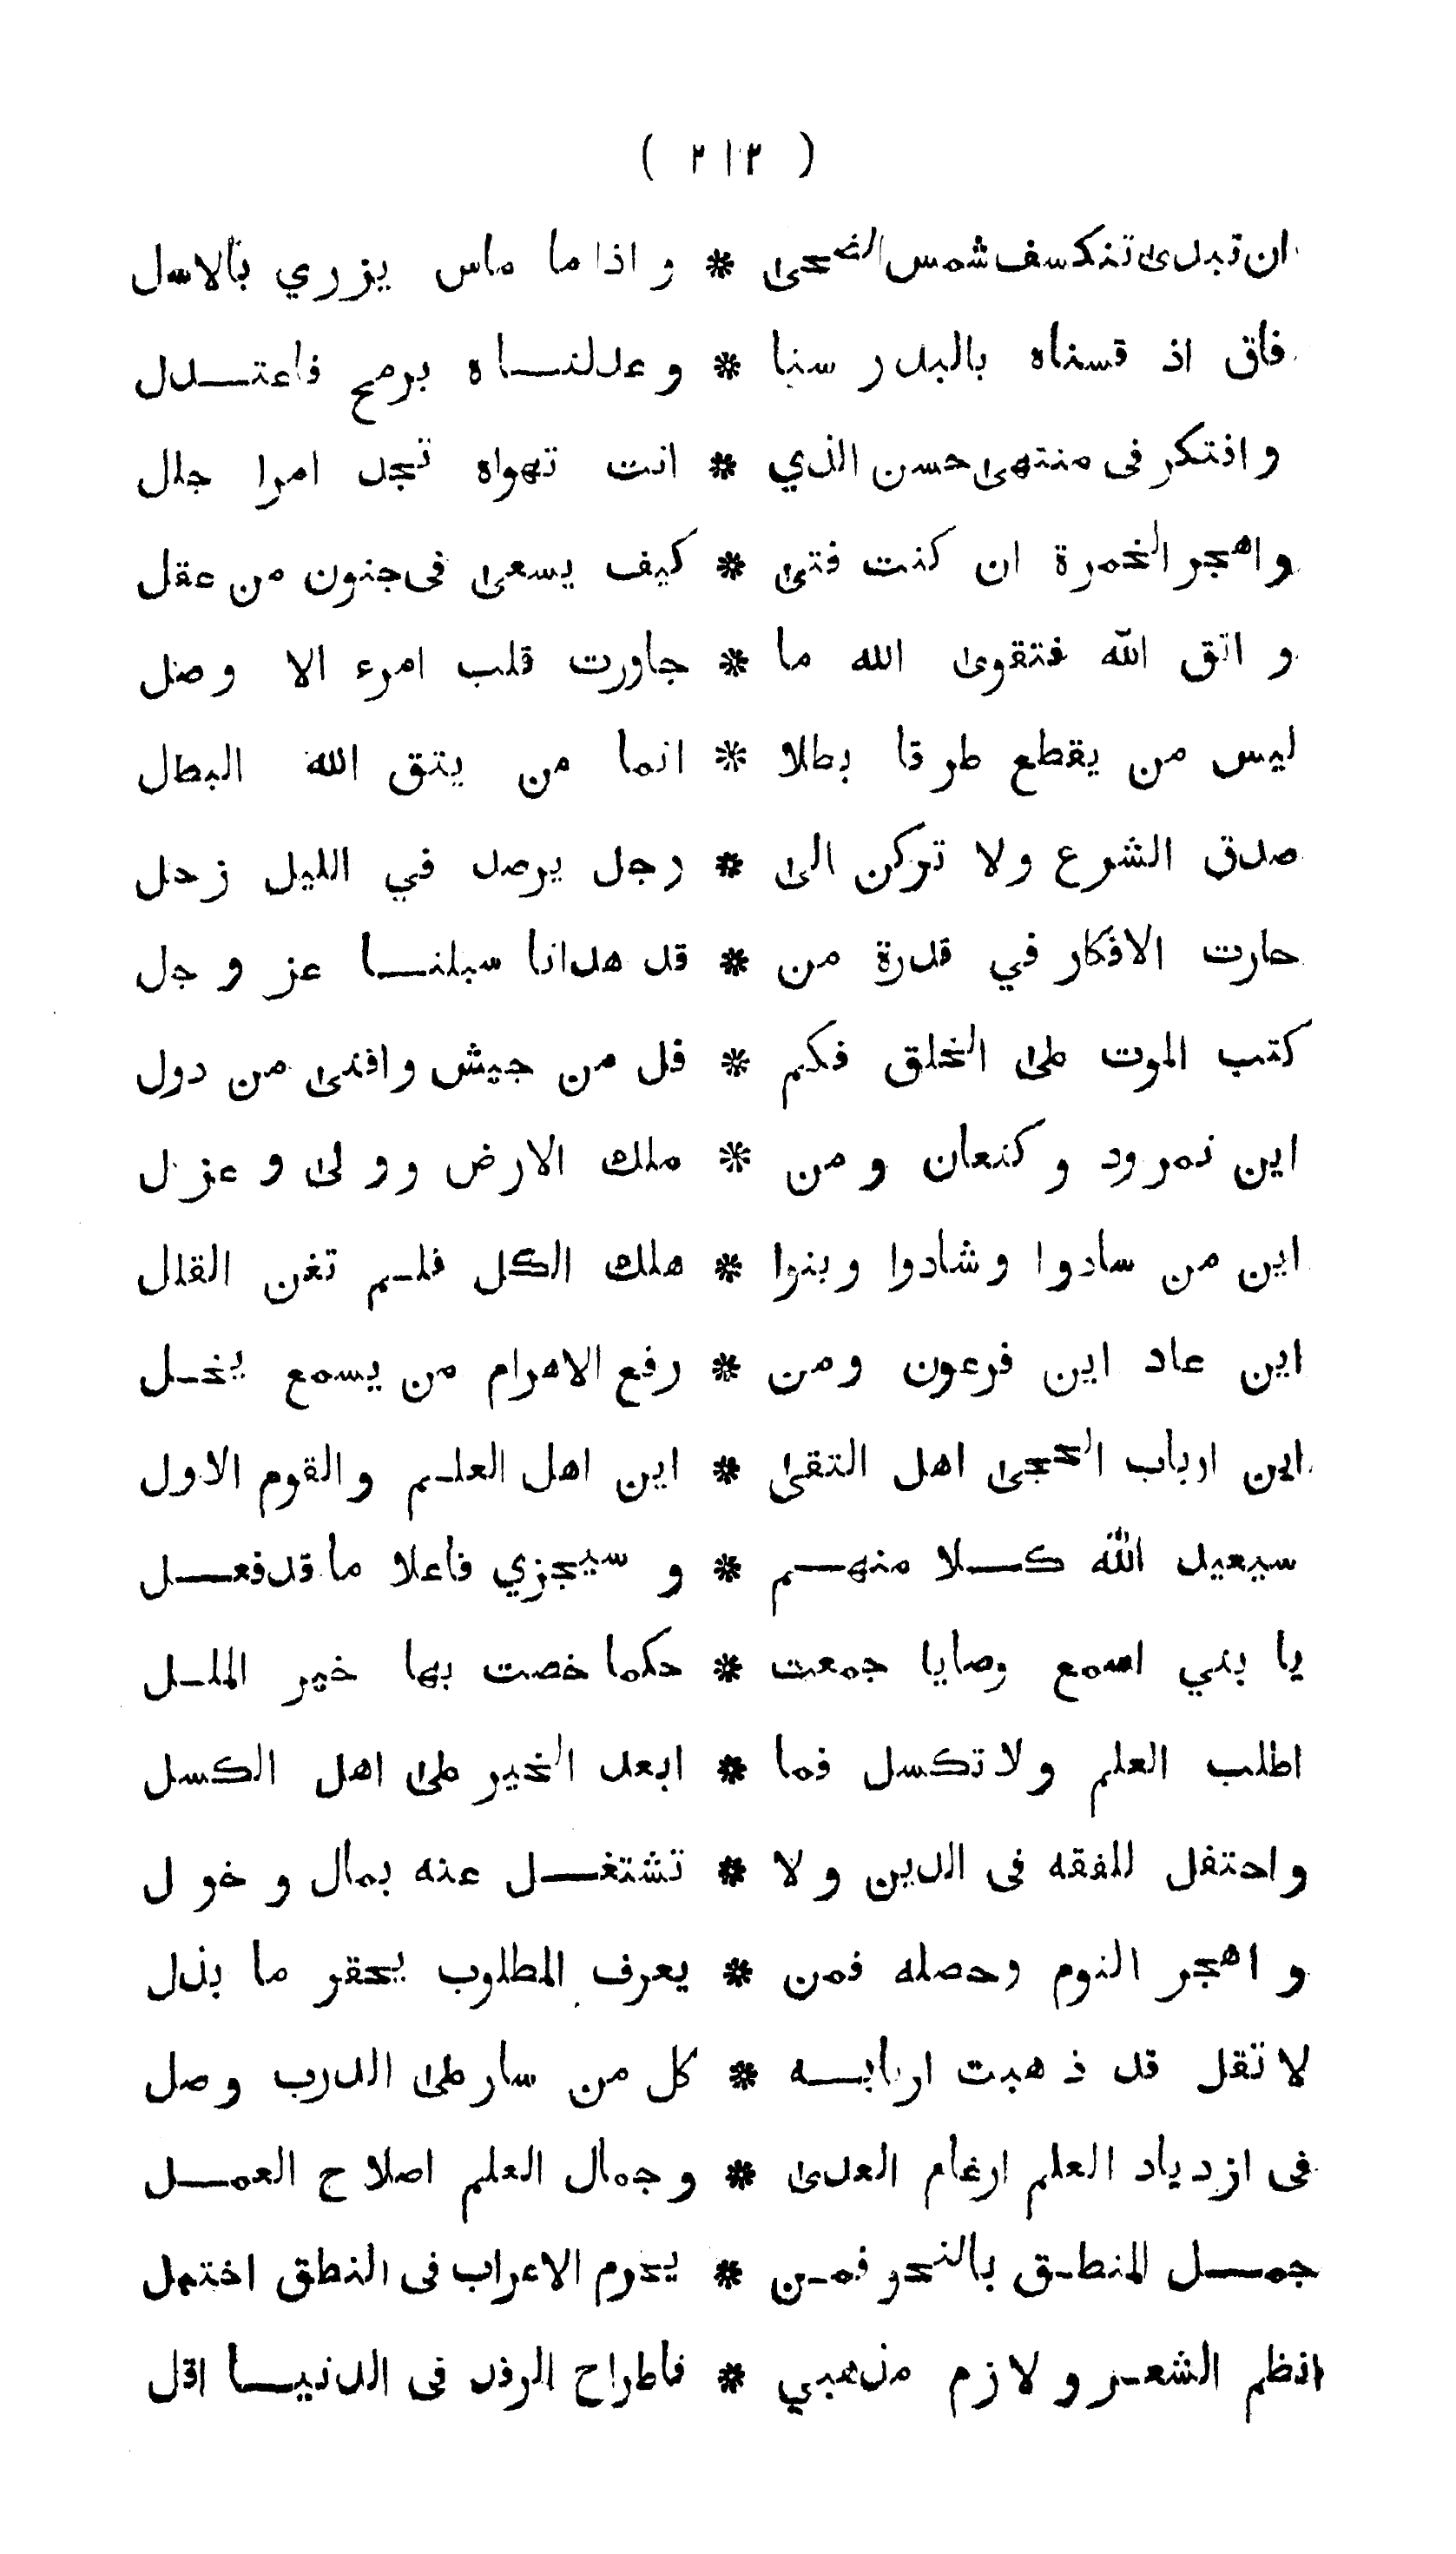 ( ٢١٢ )
ان تبدى تنكسف شمس الضحى * و اذا ما ماس يزري بالاسل
فاق اذ قسناه بالبدر سنا * و عدلنـــاه برمح فاعتـــدل
و افتكر فى منتهى حسن الذي * انت تهواه تجد امرا جلل
واهجر الخمرة ان كنت فتى * كيف يسعى فى جنون من عقل
و اتق الله فتقوى الله ما * جاورت قلب امرء الا وصل
ليس من يقطع طرقا بطلا * انما من يتق الله البطل
صدق الشرع ولا تركن الى * رجل يرصد في الليل زحل
حارت الافكار في قدرة من * قد هدانا سبلنـــا عز و جل
كتب الموت على الخلق فكم * فل من جيش وافنى من دول
اين نمرود و كنعان ومن * ملك الارض وولى و عزل
اين من سادوا وشادوا وبنوا * هلك الكل فلـم تغن القلل
اين عاد اين فرعون ومن * رفع الاهرام من يسمع يخـل
اين ارباب الحجى اهل التقى * اين اهل العلـم والقوم الاول
سيعيد الله كـــلا منهـــم * و سيجزي فاعلا ما قد فعـــل
يا بني اسمع وصايا جمعت * حكما خصت بها خير الملـل
اطلب العلم ولا تكسل فما * ابعد الخير على اهل الكسل
واحتفل للفقه فى الدين ولا * تشتغـــل عنه بمال و خول
و اهجر النوم وحصله فمن * يعرف المطلوب يحقر ما بذل
لا تقل قد ذهبت اربابـــه * كل من سار على الدرب وصل
فى ازدياد العلم ارغام العدى * وجمال العلم اصلاح العمـــل
جمـــل المنطـق بالنحو فمـن * يحرم الاعراب فى النطق اختبل
انظم الشعـر ولازم مذهبي * فاطراح الرفد فى الدنيـــا اقل